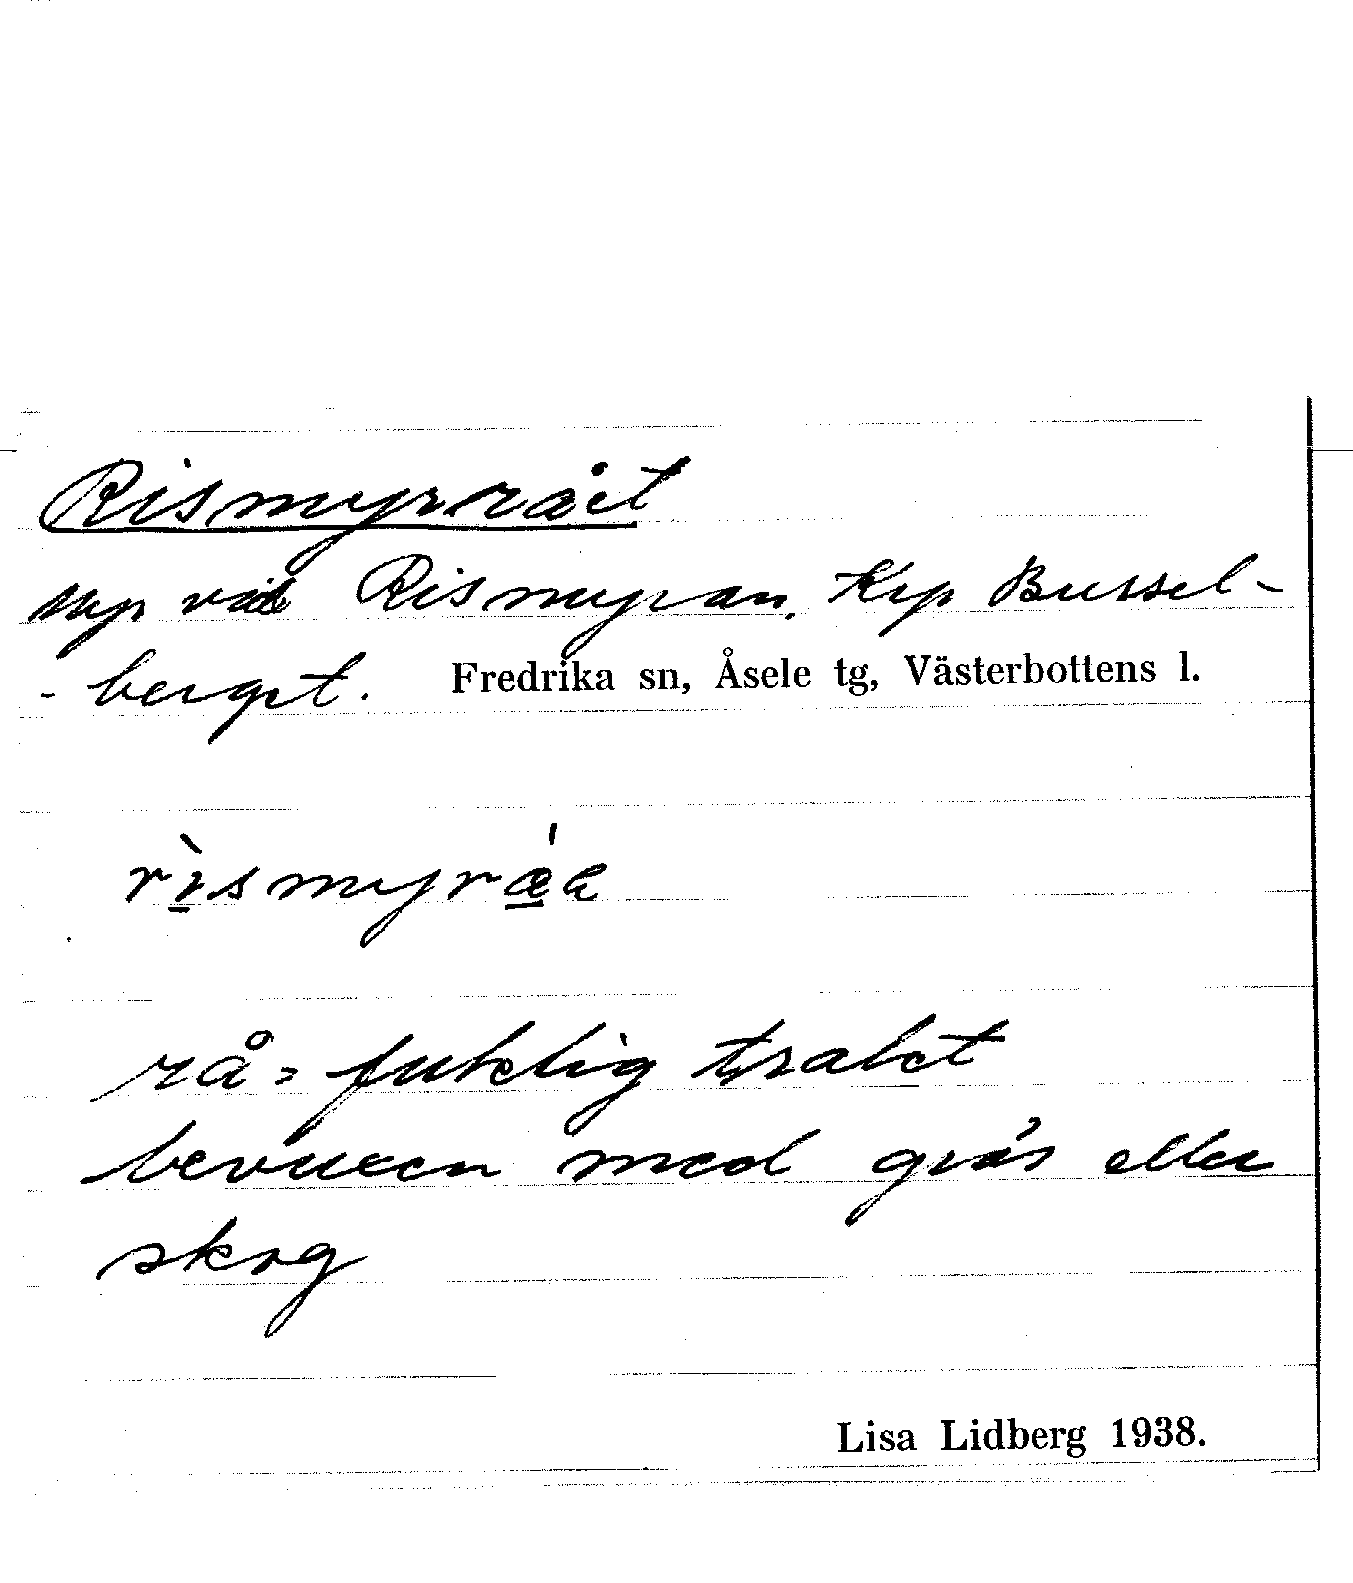 Rismyrrået
myr vid Rismyran. Krp Bussel-
- berget. Fredrika sn, Åsele tg, Västerbottens l.
rå = fuktig trakt
bevuxen med gräs eller
skog
Lisa Lidberg 1938.